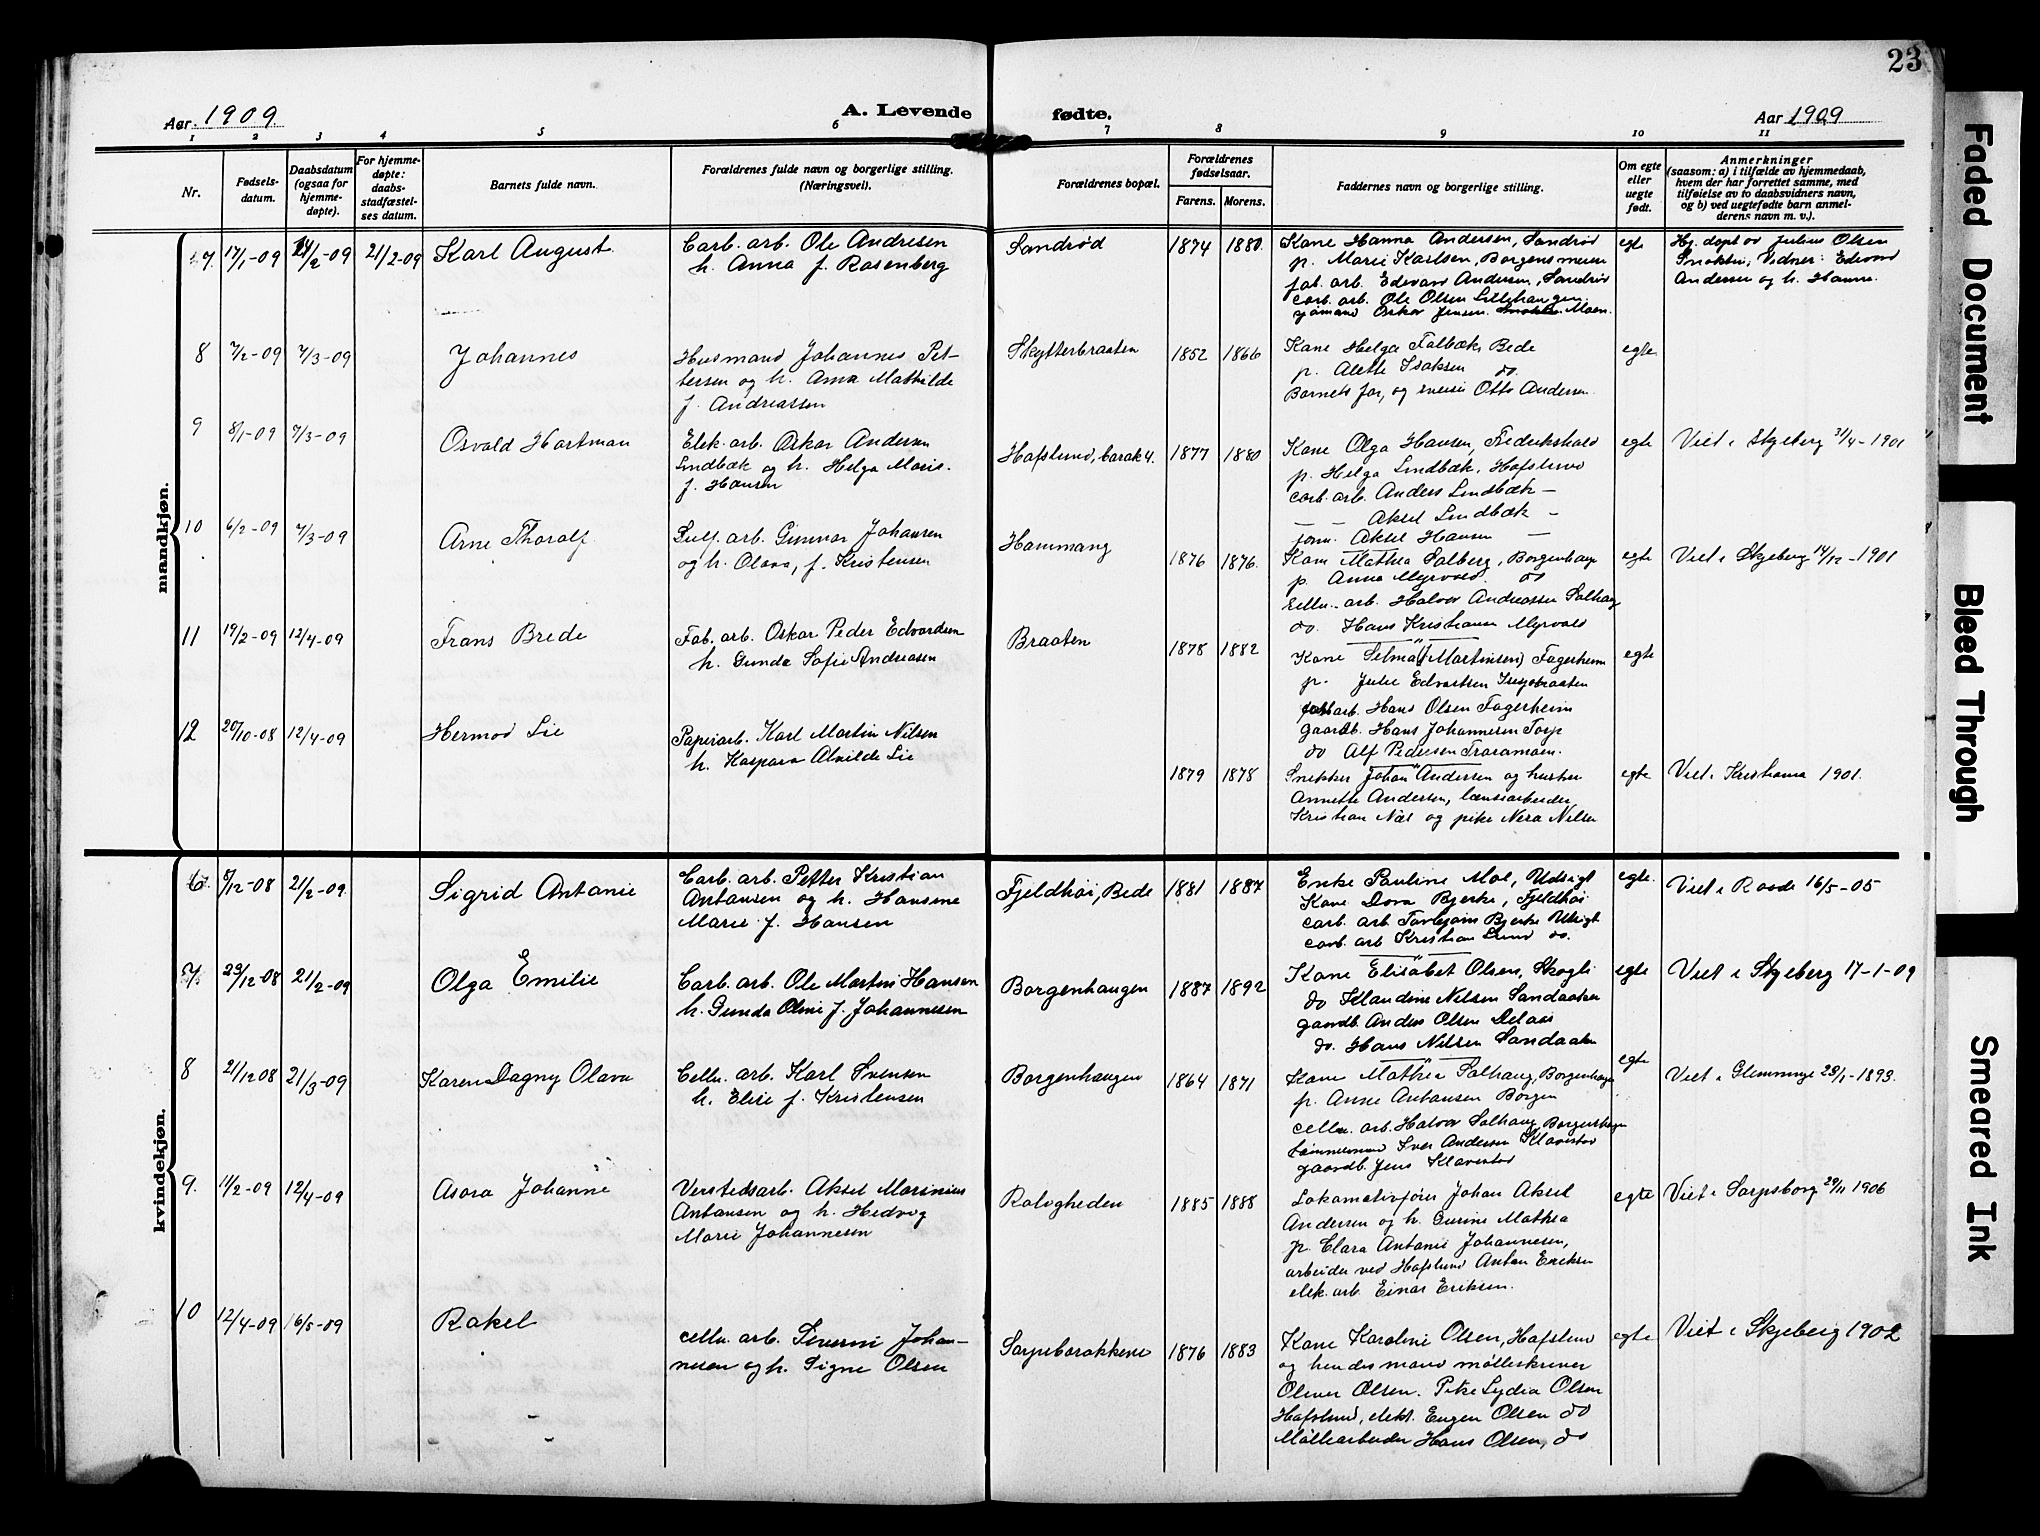 23
Aar. 1909
A. Levende fødte.
Aar 1909
1 2 3 4 5 6 7 8 9 10 11
Nr.
Fødsels-
datum.
Daabsdatum
(ogsaa for
hjemme-
døpte).
For hjemme-
døpte:
daabs-
stadfæstel-
ses datum.
Barnets fulde navn.
Forældrenes fulde navn og borgerlige stilling.
(Næringsvei).
Forældrenes bopæl.
Forældrenes
fødselsaar.
Farens. Morens.
Faddernes navn og borgerlige stilling.
Om egte
eller
uegte
født.
Anmerkninger
(saasom: a) i tilfælde av hjemmedaab,
hvem der har forrettet samme, med
tilføielse av to daabsvidners navn,
og b) ved uegtefødte barn anmel-
derens navn m. v.).
mandkjøn.
7. 17/1-09 14/2-09 21/2-09 Karl August
Carb. arb. Ole Andresen
h. Anna f. Rosenberg
Sandrød 1874 1880.
Kone Hanna Andersen, Sandrød
p. Marie Karlsen, Borgensmoen
fab. arb. Edvard Andersen, Sandrød
carb. arb. Ole Olsen Lillehaugen
sjømand Oskar Jensen. Moen.
egte
Hj. døpt av Julius Olsen
Vidner: Edvard
Andersen og h. Hanna.
8 7/2-09 7/3-09 Johannes
Husmand Johannes Pet-
tersen og h. Anna Mathilde
f. Andreassen
Skytterbraaten 1852 1866
Kone Helga Falbæk, Bede
p. Alette Isaksen do
Barnets far, og sveiser Otto Andersen
egte
9 8/1-09 7/3-09 Osvald Hartman
Elek. arb. Oskar Andersen
Lindbæk og h. Helga Marie.
f. Hansen
Hafslund, barak 4. 1877 1880
Kone Olga Hansen, Fredrikshald
p. Helga Lindbæk, Hafslund
carb. arb. Anders Lindbæk —
— — Aksel Lindbæk —
form. Aksel Hansen —
egte
Viet i Skjeberg 21/4-1901
10 6/2-09 7/3-09 Arne Thoralf
Sulf. arb. Gunnar Johansen
og h. Olava, f. Kristensen
Hammang 1876 1876.
Kone Mathea Solberg, Borgenhaug
p. Anna Myrvold. do
cellu. arb. Halvor Andreassen Solhaug
do. Hans Kristiansen Myrvold
egte
Viet i Skjeberg 14/12-1901
11 19/2-09 12/4-09 Frans Brede
Fab. arb. Oskar Peder Edvardsen
h. Gunda Sofie Andreasen
Braaten 1878 1882
Kone Selma (Martinsen) Fagerheim
p. Julie Edvartsen
fab. arb. Hans Olsen Fagerheim
gaardb. Hans Johannesen Torp
do Alf Pedersen Traramoen.
egte
12 20/10-08 12/4-09 Hermod Lie
Papirarb. Karl Martin Nilsen
h. Kaspara Alvilde Lie
1879 1878
Snekker Johan Andersen og hustru
Annette Andersen, lænsearbeider
Kristian Næs og pike Nera Nilsen
egte
Viet i Kristiania 1901.
kvindekjøn.
6. 8/12-08 21/2-09. Sigrid Antonie
Carb. arb. Petter Kristian
Antonsen og h. Hansine
Marie f. Hansen
Fjeldhøi, Bede 1881 1887
Enke Pauline Moe, Udsigt
Kone Dora Bjerke, Fjeldhøi
carb. arb. Torbjørn Bjerke Utsigt
carb. arb Kristian Lund do.
egte.
Viet i Raade 16/5-05
7. 23/12-08 21/2-09 Olga Emilie
Carb. arb. Ole Martin Hansen
h. Gunda Oline f. Johannesen
Borgenhaugen 1887 1892
Kone Elisabet Olsen, Skogli
do Klandine Nilsen Sandaaker
gaardb. Anders Olsen Delaas
do. Hans Nilsen Sandaaker
egte
Viet i Skjeberg 17-1-09
8 21/12 08 21/3-09 Karen Dagny Olava
Cellu. arb. Karl Svensen
h. Elise f. Kristensen
Borgenhaugen 1864 1871
Kone Mathea Solhaug, Borgenhaugen
p. Anne Antonsen Borgen
cellu. arb. Halvor Solhaug, Borgenhaugen
tømmermand Iver Andersen Klavestad
gaardb. Jens Klavestad
egte
Viet i Glemminge 28/1-1893.
9. 11/2-09 12/4-09 Asora Johanne
Verstedsarb. Aksel Marinius
Antonsen og h. Hedvig
Marie Johannesen
Rolvgheden 1885 1888
Lokomotivfører Johan Aksel
Andersen og h. Gurine Mathea
p. Clara Antonie Johannesen,
arbeider ved Hafslund Anton Eriksen
elek. arb. Einar Eriksen.
egte
Viet i Sarpsborg 29/11 1906
10 12/4-09 16/5-09 Rakel
cellu. arb. Severin Johan-
nesen og h. Signe Olsen
Sarpsbarakkene 1876 1883
Kone Karoline Olsen, Hafslund
og hendes mand mølleskriver
Oliver Olsen. Pike Lydia Olsen
Hafslund, elekt. Eugen Olsen do
Møllearbeider Hans Olsen, do
egte
Viet i Skjeberg 1902
Faded Document
Bleed Through
Smeared Ink